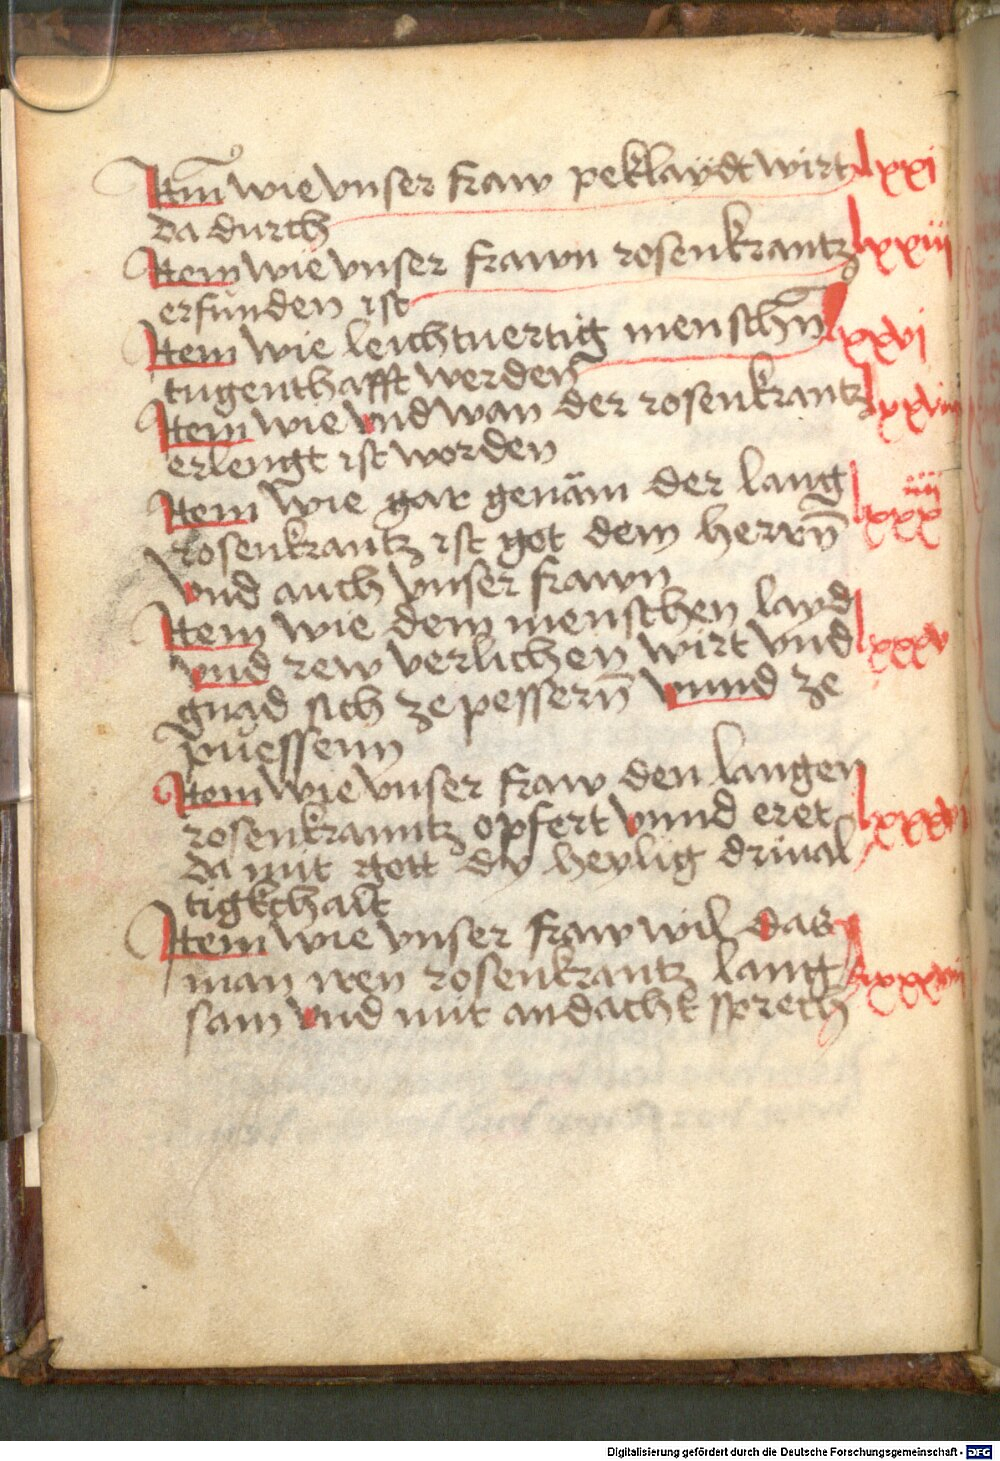 Item wie vnser fraw peklaydt wirt lxxi
da durch
Item wie vnser frawn rosenkrantz lxxiii
erfunden ist
Item wie leichtuertig menschn̄ lxxvi
tugenthafft werden
Item wie vnd wan der rosenkrantz lxxviii
erlengt ist worden
Item wie gar genäm der lang lxxxiiii
rosenkrantz ist got dem herrn̄
vnd auch vnser frawn
Item wie dem menschen layd
vnd rew verlichen wirt vnd lxxxv
gnad sich ze pessern̄ vnnd ze
püessenn
Item wie vnser fraw den langen
rosenkranntz opfert vnnd eret lxxxvi
da mit gott dy heylig driual
tigkchait
Item wie vnser fraw wil das
man iren rosenkrantz lang lxxxvii
sam vnd mit andacht sprech
Digitalisierung gefördert durch die Deutsche Forschungsgemeinschaft - DFG